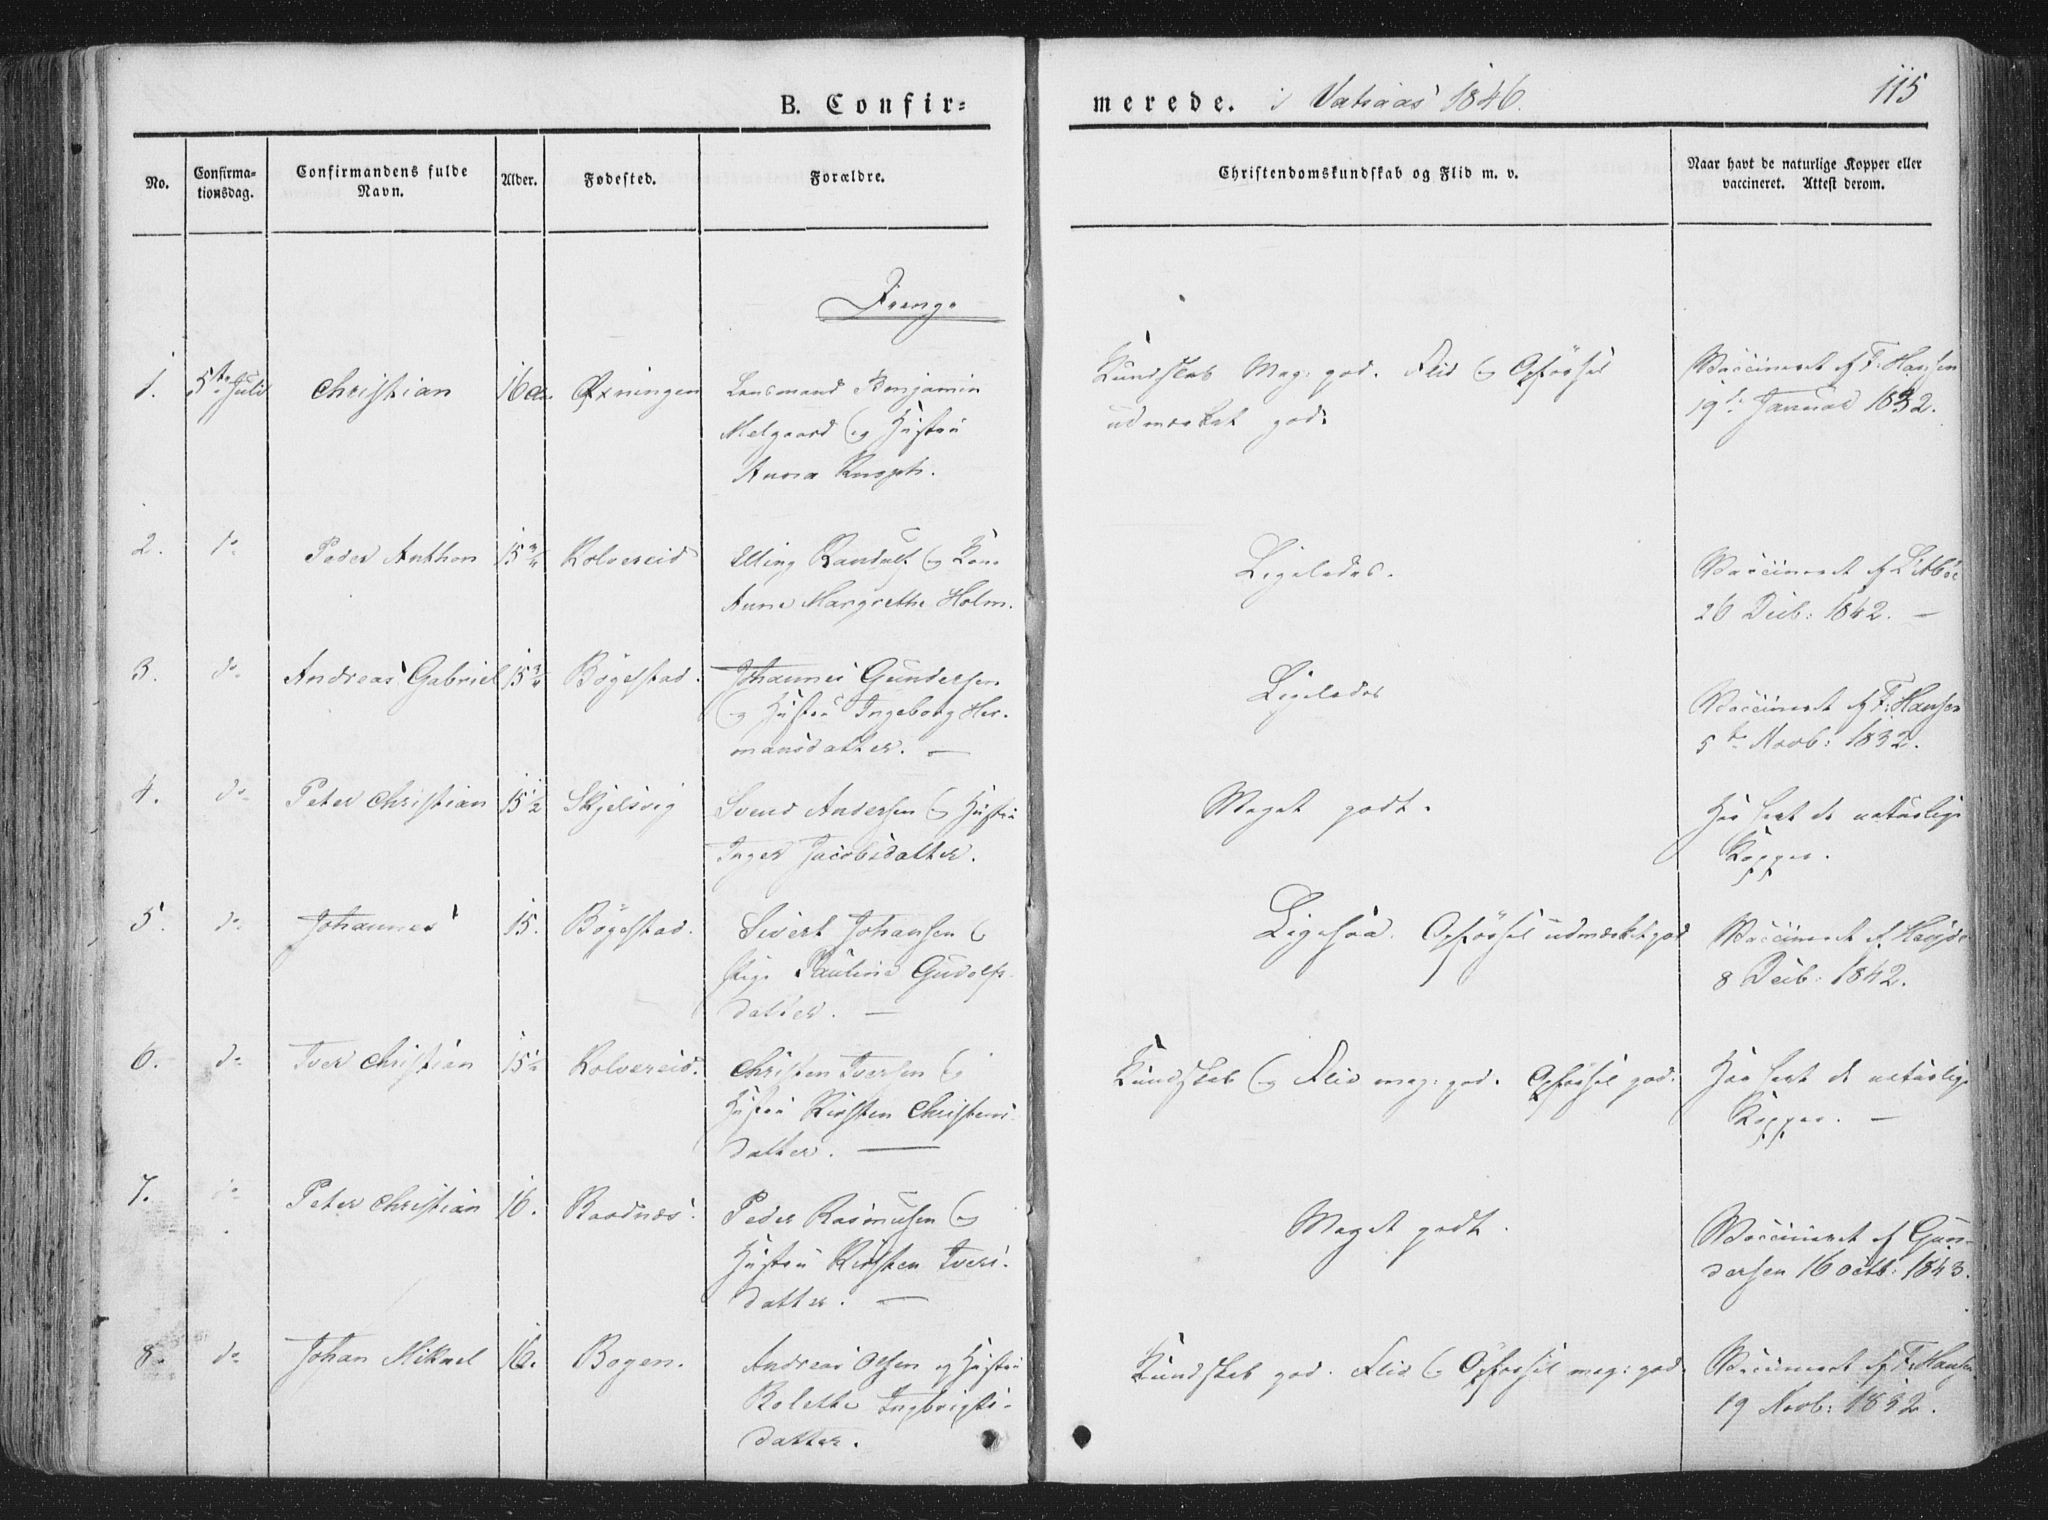 115
B. Confir= merede. i Vatnaas 1846.
No. Confirma-tionsdag. Confirmandens fulde Navn. Alder. Fødested. Forældre. Christendomskundskab og Flid m. v. Naar havt de naturlige Kopper eller vaccineret. Attest derom.
Drenge
1. 5te Juli Christian 16 a. Øxningen Lensmand Benjamin Kundskab Meg: god. Flid og Opførsel Vaccineret af F: Hansen
Melgaard og Hustru udmærket god. 19de Januar 1832.
Anna Knoph.
2. do Peder Anthon 15 3/4 Kolvereid Elling Randulf og Kone Ligeledes. Vaccineret af
Anne Margrethe Holm. 26 Decb: 1842. —
3. do Andreas Gabriel 15 3/4 Bögestad. Johannes Gundersen Ligeledes Vaccineret af F: Hansen
og Hustru Ingeborg Her- 5te Novb: 1832.
mansdatter. —
4. do Peter Christian 15 1/2 Skjelsvig Svend Andersen og Hustru Meget godt. Har havt de naturlige
Inger Jacobsdatter. Kopper.
5. do Johannes 15. Bögestad. Sivert Johansen og Ligesaa. Opførsel udmærket god Vaccineret af
Pige Pauline Gudolfs- 8 Decb: 1842.
datter. —
6. do Iver Christian 15 1/2 Kolvereid. Christen Iversen og Kundskab og Flid meg: god. Opførsel god. Har havt de naturlige
Hustru Kirsten Christens- Kopper. —
datter. —
7. do Peter Christian 16. Raadnæs. Peder Rasmusen og Meget godt. Vaccineret af Gun-
Hustru Kirsten Ivers- dersen 16 Octb: 1843.
datter. —
8. do Johan Mikael 16. Bogen. Andreas Olsen og Hustru Kundskab god. Flid og Opførsel meg: god. Vaccineret af F: Hansen
Rolethe Ingbrigts- 19 Novb: 1832.
datter.